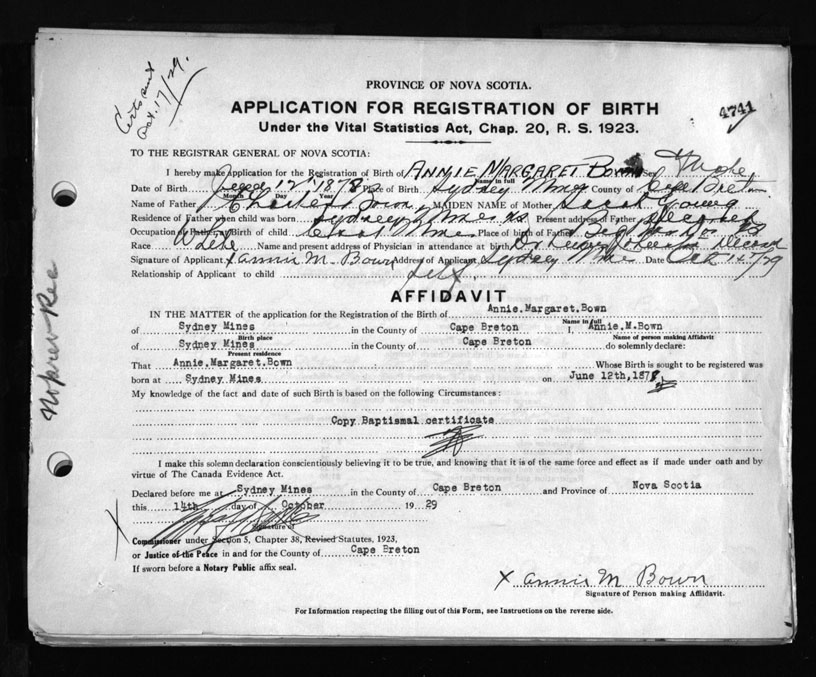 Certs sent
Oct. 17/29.
PROVINCE OF NOVA SCOTIA.
APPLICATION FOR REGISTRATION OF BIRTH
4741
Under the Vital Statistics Act, Chap. 20, R. S. 1923.
TO THE REGISTRAR GENERAL OF NOVA SCOTIA:
I hereby make application for the Registration of Birth of ANNIE MARGARET BOWN Sex
Name in full
Date of Birth June 12 1878 Place of Birth Sydney Mines County of Cape Breton
Month Day Year
Name of Father Charles Bown MAIDEN NAME of Mother Sarah Young
Residence of Father when child was born Sydney Mines Present address of Father deceased
Occupation of Father at Birth of child Coal Place of birth of Father
Race White Name and present address of Physician in attendance at birth Dr
Signature of Applicant x Annie M. Bown Address of Applicant Sydney Mines Date Oct 14/29
Relationship of Applicant to child self.
AFFIDAVIT
IN THE MATTER of the application for the Registration of Birth of Annie.Margaret.Bown
Name in full
of Sydney Mines in the County of Cape Breton I, Annie.M.Bown
Birth place Name of person making Affidavit
of Sydney Mines in the County of Cape Breton do solemnly declare:
Present residence
That Annie.Margaret.Bown Whose Birth is sought to be registered was
born at Sydney Mines on June 12th,1878
My knowledge of the fact and date of such Birth is based on the following Circumstances:
Copy Baptismal certificate
I make this solemn declaration conscientiously believing it to be true, and knowing that it is of the same force and effect as if made under oath and by
virtue of The Canada Evidence Act.
Declared before me at Sydney Mines in the County of Cape Breton and Province of Nova Scotia
this 14th day of October 19 29
Signature of
Commissioner under Section 5, Chapter 38, Revised Statutes, 1923,
or Justice of the Peace in and for the County of Cape Breton
If sworn before a Notary Public affix seal.
x Annie M Bown
Signature of Person making Affidavit.
For Information respecting the filling out of this Form, see Instructions on the reverse side.